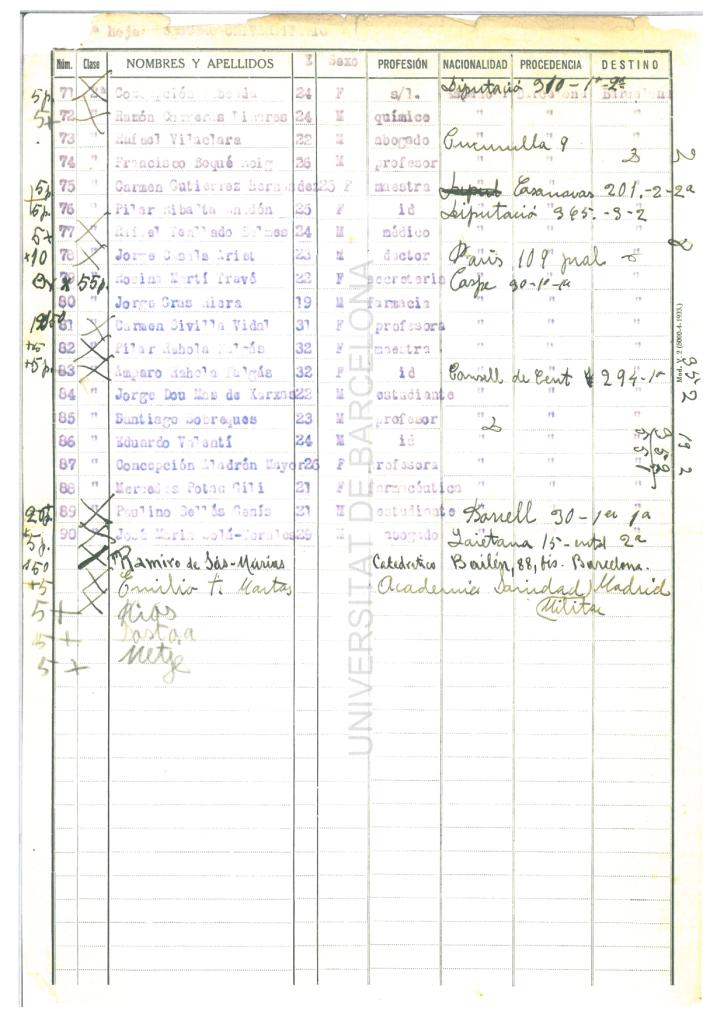 ª Hoja: CRUCERO UNIVERSITARIO
Núm. Clase NOMBRES Y APELLIDOS E Sexo PROFESIÓN NACIONALIDAD PROCEDENCIA DESTINO
5p. 71 2ª Concepción 24 F s/l. Diputació 310-1º-2ª
5+ 72 " Ramón Carreras Linares 24 M químico " " "
73 " Rafael Vilaclara 22 M abogado Cucurulla 9 "
74 " Francisco Boqué Roig 26 M profesor " " 3
5p 75 " Carmen Gutierrez Hernandez 25 F maestra Casanovas 201.-2-2ª
5p. 76 " Pilar Ribalta 25 F id Diputació 365.-3-2
5+ 77 " Rafael Tenllado Balmes 24 M médico " " "
+10 78 " Jorge Casals Ariet 23 M doctor París 109 pral
x 79 55p. Rosina Martí Travé 22 F secretaria Caspe 30-1º-1ª
80 " Jorge Gras Riera 19 M farmacia " " "
81 " Carmen Sivilla Vidal 31 F profesora " " "
+5 82 " Pilar Rahola Falgás 32 F maestra " " "
+5p. 83 " Amparo Rahola Falgás 32 F id Consell de Cent 294-1º
84 " Jorge Dou Mas de Xarxas 22 M estudiante " " "
85 " Santiago Sobreques 23 M profesor 2 " "
86 " Eduardo Valentí 24 M id " " "
87 " Concepción Aladrén Mayor 26 F profesora " " "
88 " Mercedes Potau Gili 21 F farmacéutica " " "
89 " Paulino Bellés Genís 21 M estudiante Borrell 30-1er 1ª
5p. 90 " José Maria Solá-Morales 29 M abogado Laietana 15-entsl 2ª
150 Ramiro de Sás-Murias Catedrático Bailén, 88, bis. Barcelona.
+5 Emilio F. Martas Academia Sanidad Madrid
Militar
5 + Rios
5 + Pastora
5 + Metge
UNIVERSITAT DE BARCELONA
Mod. V. 2 (5000-4-1933.)
2
2
352
192